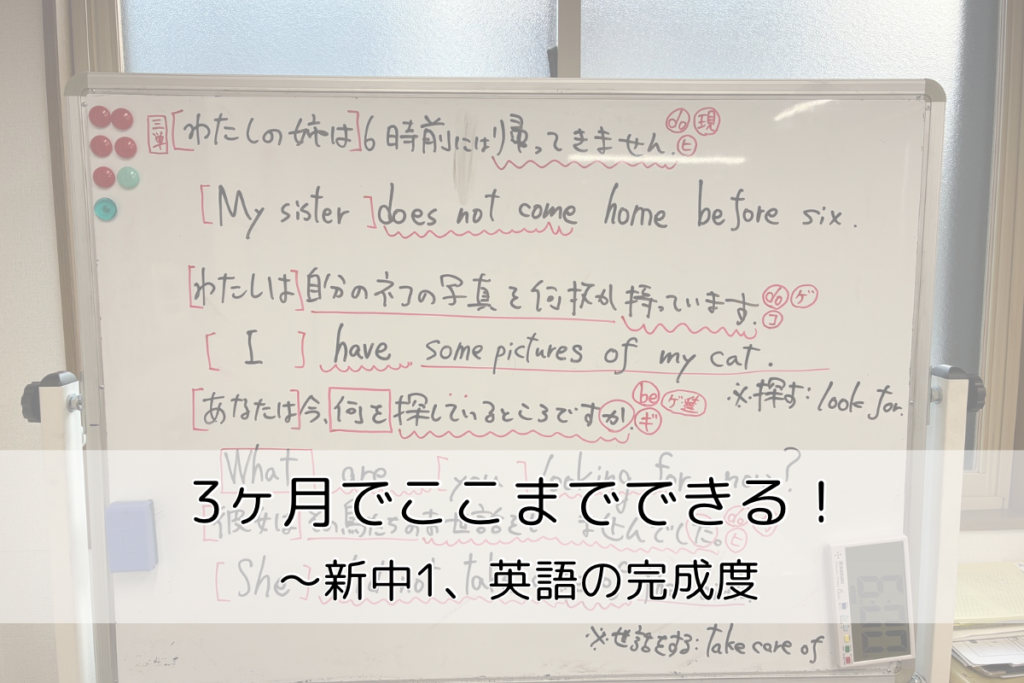 三単 [わたしの姉は]6時前には帰ってきません. do 現 ヒ
[My sister] does not come home before six.
[わたしは]自分のネコの写真を何枚か持っています. do ゲ コ
[ I ] have some pictures of my cat.
[あなたは]今,何を探しているところですか. be ギ
※探す: look for.
What are [you] looking for now?
3ヶ月でここまでできる！
[彼女は] お世話を ませんでした。
～新中1、英語の完成度
[She] not
※世話をする: take care of